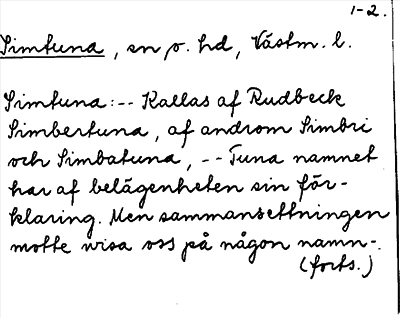 1-2.
Simtuna, sn o. hd, Västm. l.
Simtuna:-- Kallas af Rudbeck
Simbertuna, af androm Simbri
och Simbatuna, -- Tuna namnet
har af belägenheten sin för-
klaring. Men sammansettningen
motte wisa oss på någon namn-.
(forts.)